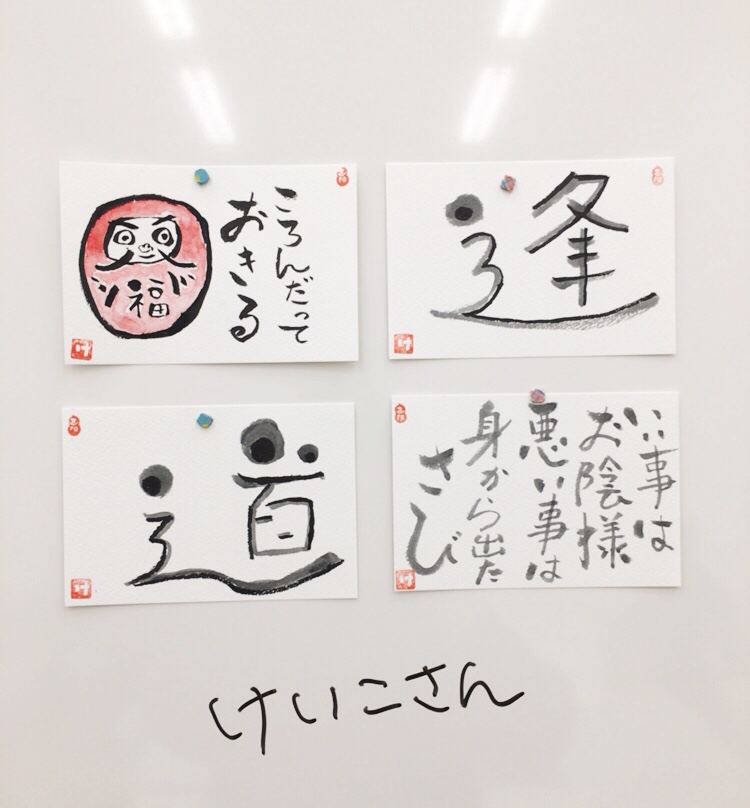 ころんだって
おきる
福
け
逢
け
道
け
いい事は
お陰様
悪い事は
身から出た
さび
け
けいこさん